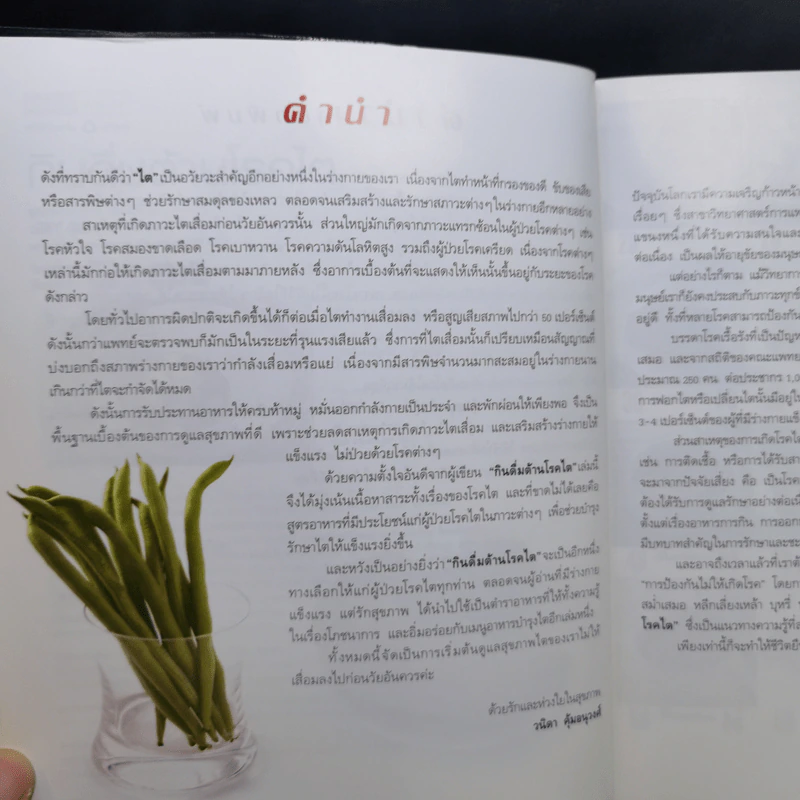 คำนำ
ดังที่ทราบกันดีว่า "ไต" เป็นอวัยวะสำคัญอีกอย่างหนึ่งในร่างกายของเรา เนื่องจากไตทำหน้าที่กรองของดี ขับของเสีย
หรือสารพิษต่างๆ ช่วยรักษาสมดุลของเหลว ตลอดจนเสริมสร้างและรักษาสภาวะต่างๆ ในร่างกายอีกหลายอย่าง
สาเหตุที่เกิดภาวะไตเสื่อมก่อนวัยอันควรนั้น ส่วนใหญ่มักเกิดจากภาวะแทรกซ้อนในผู้ป่วยโรคต่างๆ เช่น
โรคหัวใจ โรคสมองขาดเลือด โรคเบาหวาน โรคความดันโลหิตสูง รวมถึงผู้ป่วยโรคเครียด เนื่องจากโรคต่างๆ
เหล่านี้มักก่อให้เกิดภาวะไตเสื่อมตามมาภายหลัง ซึ่งอาการเบื้องต้นที่จะแสดงให้เห็นนั้นขึ้นอยู่กับระยะของโรค
ดังกล่าว
โดยทั่วไปอาการผิดปกติจะเกิดขึ้นได้ก็ต่อเมื่อไตทำงานเสื่อมลง หรือสูญเสียสภาพไปกว่า 50 เปอร์เซ็นต์
ดังนั้นกว่าแพทย์จะตรวจพบก็มักเป็นในระยะที่รุนแรงเสียแล้ว ซึ่งการที่ไตเสื่อมนั้นก็เปรียบเหมือนสัญญาณที่
บ่งบอกถึงสภาพร่างกายของเราว่ากำลังเสื่อมหรือแย่ เนื่องจากมีสารพิษจำนวนมากสะสมอยู่ในร่างกายนาน
เกินกว่าที่ไตจะกำจัดได้หมด
ดังนั้นการรับประทานอาหารให้ครบห้าหมู่ หมั่นออกกำลังกายเป็นประจำ และพักผ่อนให้เพียงพอ จึงเป็น
พื้นฐานเบื้องต้นของการดูแลสุขภาพที่ดี เพราะช่วยลดสาเหตุการเกิดภาวะไตเสื่อม และเสริมสร้างร่างกายให้
แข็งแรง ไม่ป่วยด้วยโรคต่างๆ
ด้วยความตั้งใจอันดีจากผู้เขียน "กินดื่มต้านโรคไต" เล่มนี้
จึงได้มุ่งเน้นเนื้อหาสาระทั้งเรื่องของโรคไต และที่ขาดไม่ได้เลยคือ
สูตรอาหารที่มีประโยชน์แก่ผู้ป่วยโรคไตในภาวะต่างๆ เพื่อช่วยบำรุง
รักษาไตให้แข็งแรงยิ่งขึ้น
และหวังเป็นอย่างยิ่งว่า "กินดื่มต้านโรคไต" จะเป็นอีกหนึ่ง
ทางเลือกให้แก่ผู้ป่วยโรคไตทุกท่าน ตลอดจนผู้อ่านที่มีร่างกาย
แข็งแรง แต่รักสุขภาพ ได้นำไปใช้เป็นตำราอาหารที่ให้ทั้งความรู้
ในเรื่องโภชนาการ และอิ่มอร่อยกับเมนูอาหารบำรุงไตอีกเล่มหนึ่ง
ทั้งหมดนี้จัดเป็นการเริ่มต้นดูแลสุขภาพไตของเราไม่ให้
เสื่อมลงไปก่อนวัยอันควรค่ะ
ด้วยรักและห่วงใยในสุขภาพ
วนิดา คุ้มอนุวงศ์
ปัจจุบันโลกเรามีความเจริญก้าวหน้า
เรื่อยๆ ซึ่งสาขาวิทยาศาสตร์การแพ
แขนงหนึ่งที่ได้รับความสนใจและ
ต่อเนื่อง เป็นผลให้อายุขัยของมนุษ
แต่อย่างไรก็ตาม แม้วิทยาการ
มนุษย์เราก็ยังคงประสบกับภาวะทุกข์
อยู่ดี ทั้งที่หลายโรคสามารถป้องกัน
บรรดาโรคเรื้อรังที่เป็นปัญห
เสมอ และจากสถิติของคณะแพทย
ประมาณ 250 คน ต่อประชากร 1,0
การฟอกไตหรือเปลี่ยนไตนั้นมีอยู่ใ
3-4 เปอร์เซ็นต์ของผู้ที่มีร่างกายแข็
ส่วนสาเหตุของการเกิดโรคไ
เช่น การติดเชื้อ หรือการได้รับสา
จะมาจากปัจจัยเสี่ยง คือ เป็นโรค
ต้องได้รับการดูแลรักษาอย่างต่อเนื
ตั้งแต่เรื่องอาหารการกิน การออก
มีบทบาทสำคัญในการรักษาและชะ
และอาจถึงเวลาแล้วที่เราต้
"การป้องกันไม่ให้เกิดโรค" โดยก
สม่ำเสมอ หลีกเลี่ยงเหล้า บุหรี่
โรคไต" ซึ่งเป็นแนวทางความรู้ที่ส
เพียงเท่านี้ก็จะทำให้ชีวิตยืน